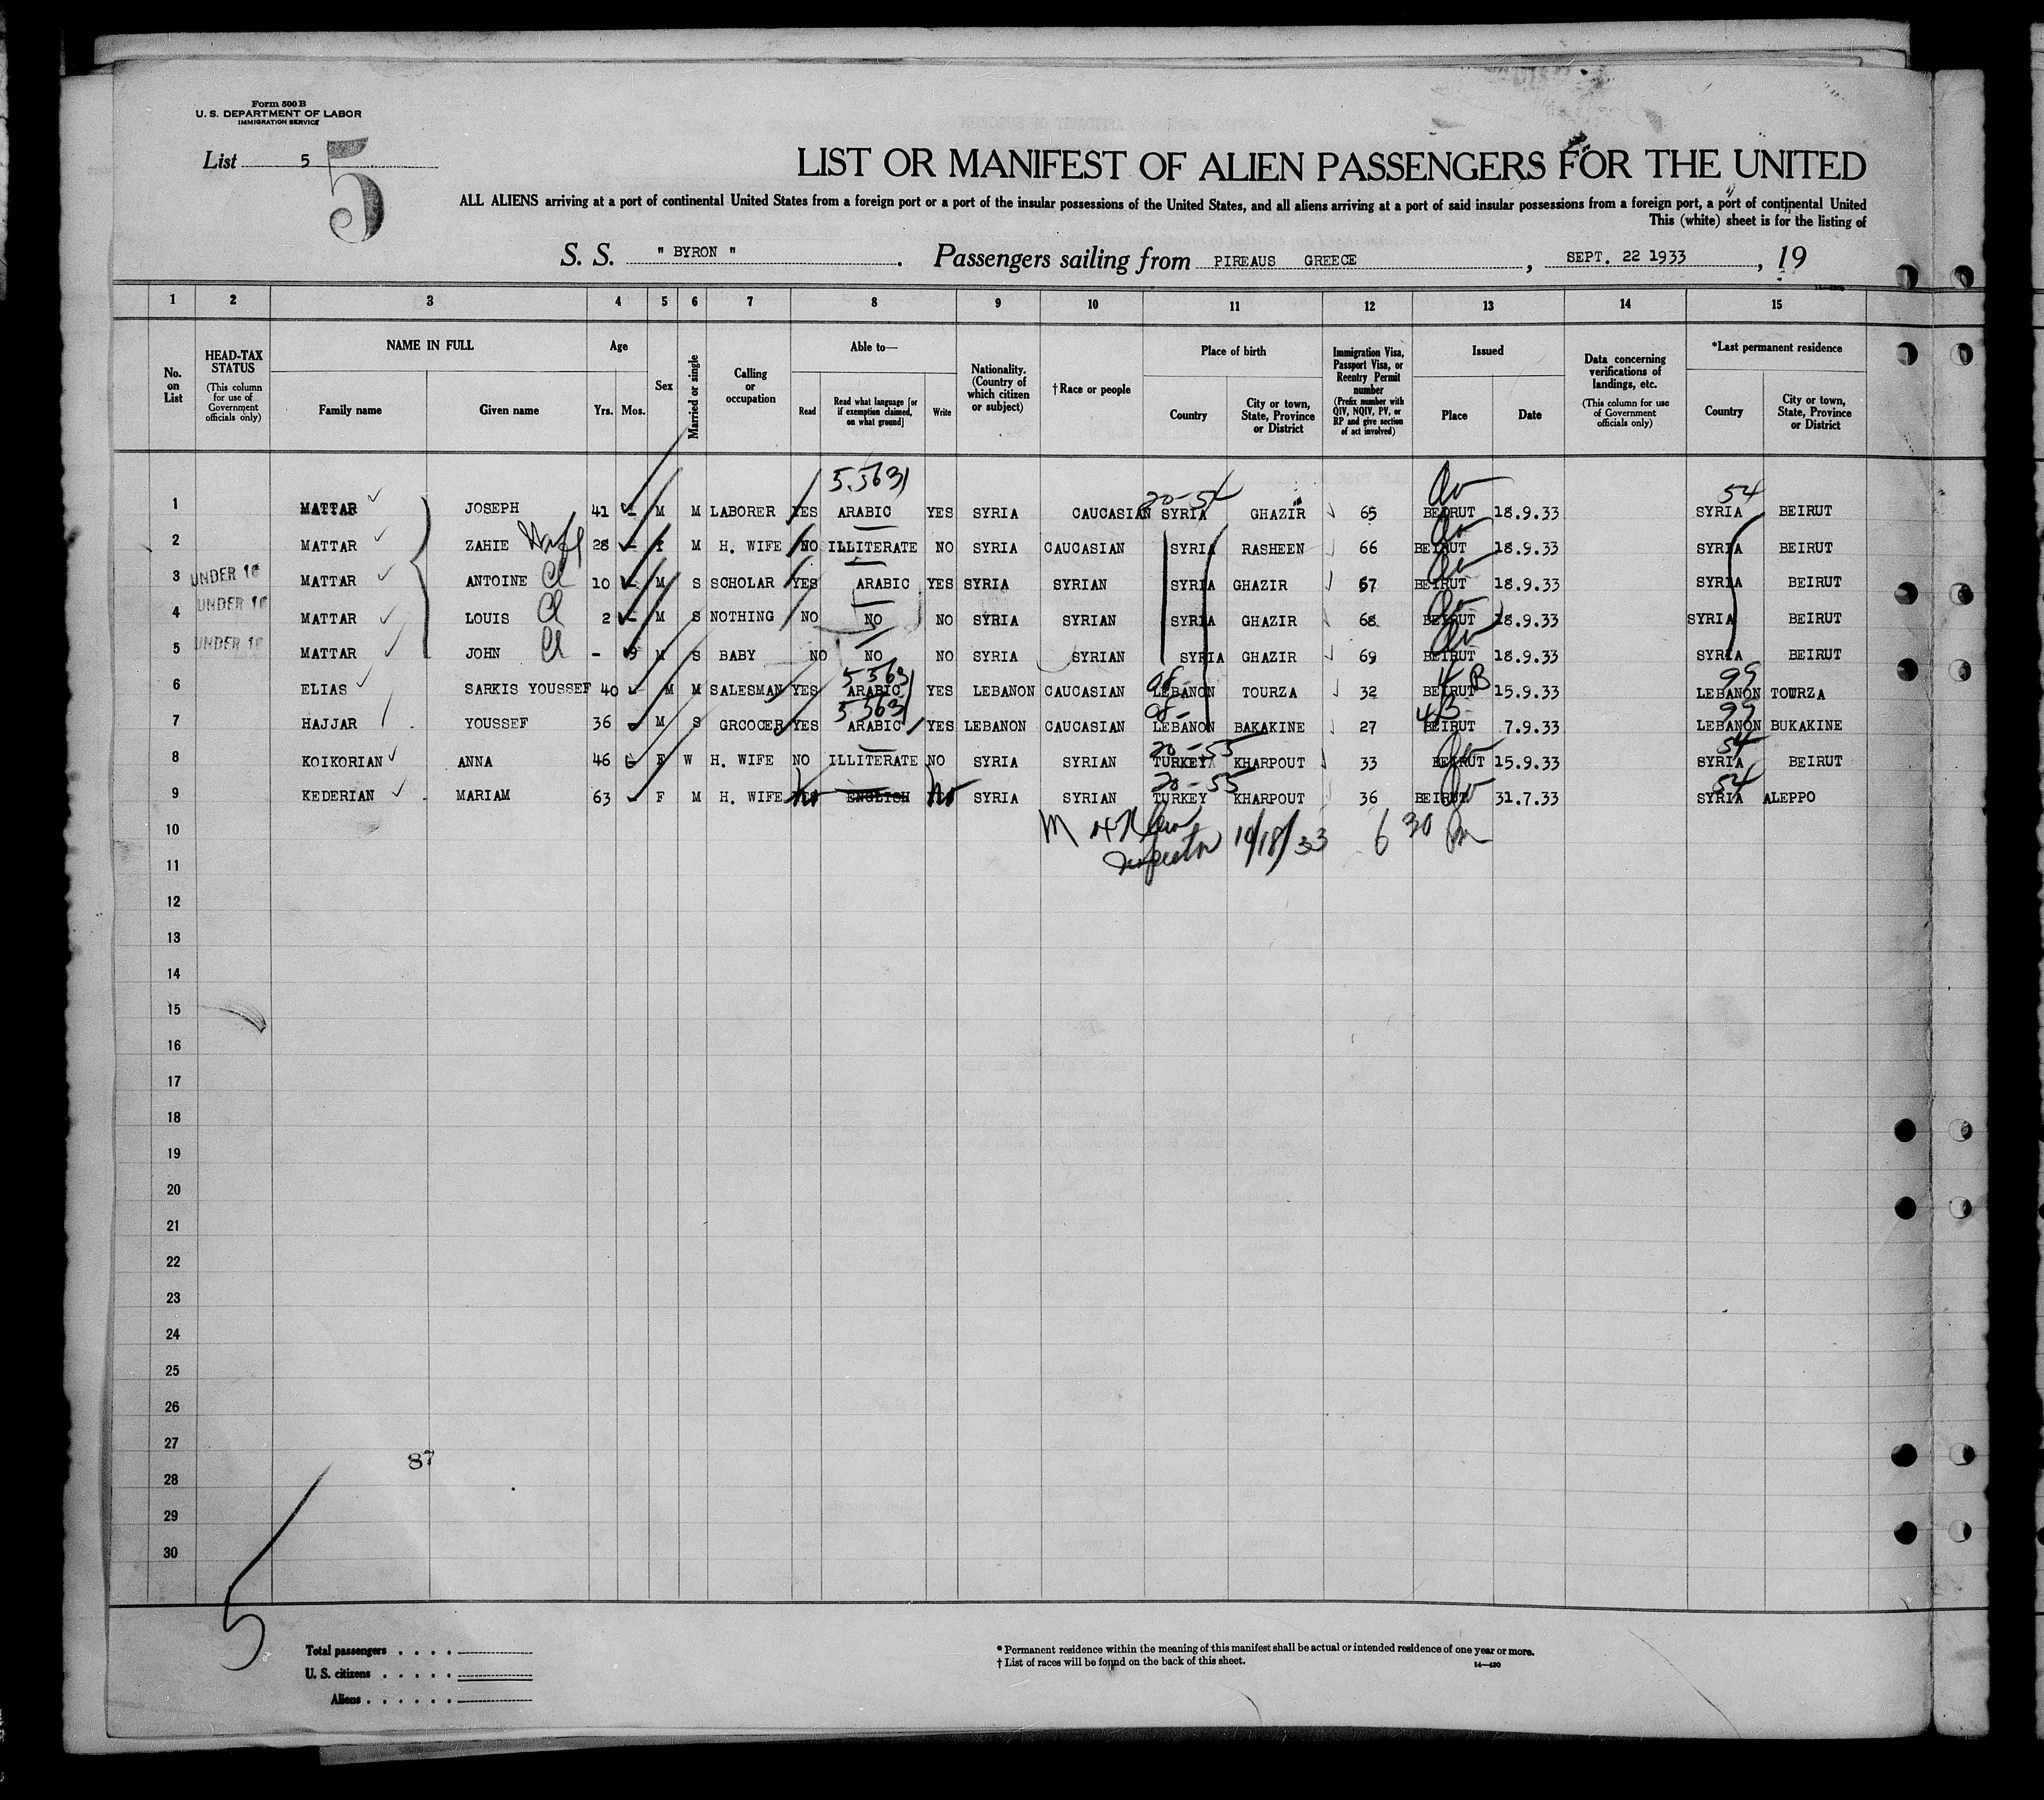 Form 500 B
U. S. DEPARTMENT OF LABOR
IMMIGRATION SERVICE
List 5
5
LIST OR MANIFEST OF ALIEN PASSENGERS FOR THE UNITED
ALL ALIENS arriving at a port of continental United States from a foreign port or a port of the insular possessions of the United States, and all aliens arriving at a port of said insular possessions from a foreign port, a port of continental United
This (white) sheet is for the listing of
S. S. " BYRON " . Passengers sailing from PIREAUS GREECE , SEPT. 22 1933 , 19
1 2 3 4 5 6 7 8 9 10 11 12 13 14 15
No. on List
HEAD-TAX STATUS (This column for use of Government officials only)
NAME IN FULL
Family name Given name
Age
Yrs. Mos.
Sex
Married or single
Calling or occupation
Able to—
Read Read what language [or if exemption claimed, on what ground] Write
Nationality. (Country of which citizen or subject)
†Race or people
Place of birth
Country City or town, State, Province or District
Immigration Visa, Passport Visa, or Reentry Permit number (Prefix number with QIV, NQIV, PV, or RP and give section of act involved)
Issued
Place Date
Data concerning verifications of landings, etc. (This column for use of Government officials only)
*Last permanent residence
Country City or town, State, Province or District
5.5631 20-54 54
1 MATTAR JOSEPH 41 - M M LABORER YES ARABIC YES SYRIA CAUCASIAN SYRIA GHAZIR 65 BEIRUT 18.9.33 SYRIA BEIRUT
2 MATTAR ZAHIE Wife 28 - F M H. WIFE NO ILLITERATE NO SYRIA CAUCASIAN SYRIA RASHEEN 66 BEIRUT 18.9.33 SYRIA BEIRUT
3 UNDER 16 MATTAR ANTOINE Cl 10 - M S SCHOLAR YES ARABIC YES SYRIA SYRIAN SYRIA GHAZIR 67 BEIRUT 18.9.33 SYRIA BEIRUT
4 UNDER 16 MATTAR LOUIS Cl 2 - M S NOTHING NO NO NO SYRIA SYRIAN SYRIA GHAZIR 68 BEIRUT 18.9.33 SYRIA BEIRUT
5 UNDER 16 MATTAR JOHN Cl - M S BABY NO NO NO SYRIA SYRIAN SYRIA GHAZIR 69 BEIRUT 18.9.33 SYRIA BEIRUT
5 5631 4 B 99
6 ELIAS SARKIS YOUSSEF 40 - M M SALESMAN YES ARABIC YES LEBANON CAUCASIAN LEBANON TOURZA 32 BEIRUT 15.9.33 LEBANON TOURZA
5 5631 4B 99
7 HAJJAR YOUSSEF 36 - M S GRCOCER YES ARABIC YES LEBANON CAUCASIAN LEBANON BAKAKINE 27 BEIRUT 7.9.33 LEBANON BUKAKINE
20-55 54
8 KOIKORIAN ANNA 46 - F W H. WIFE NO ILLITERATE NO SYRIA SYRIAN TURKEY KHARPOUT 33 BEIRUT 15.9.33 SYRIA BEIRUT
20-55 54
9 KEDERIAN MARIAM 63 - F M H. WIFE No ENGLISH No SYRIA SYRIAN TURKEY KHARPOUT 36 BEIRUT 31.7.33 SYRIA ALEPPO
10
11 Inspector 10/18/33 6 30 Pm
12
13
14
15
16
17
18
19
20
21
22
23
24
25
26
27
87
28
29
30
5
Total passengers
U. S. citizens
Aliens
* Permanent residence within the meaning of this manifest shall be actual or intended residence of one year or more.
† List of races will be found on the back of this sheet.
14—430